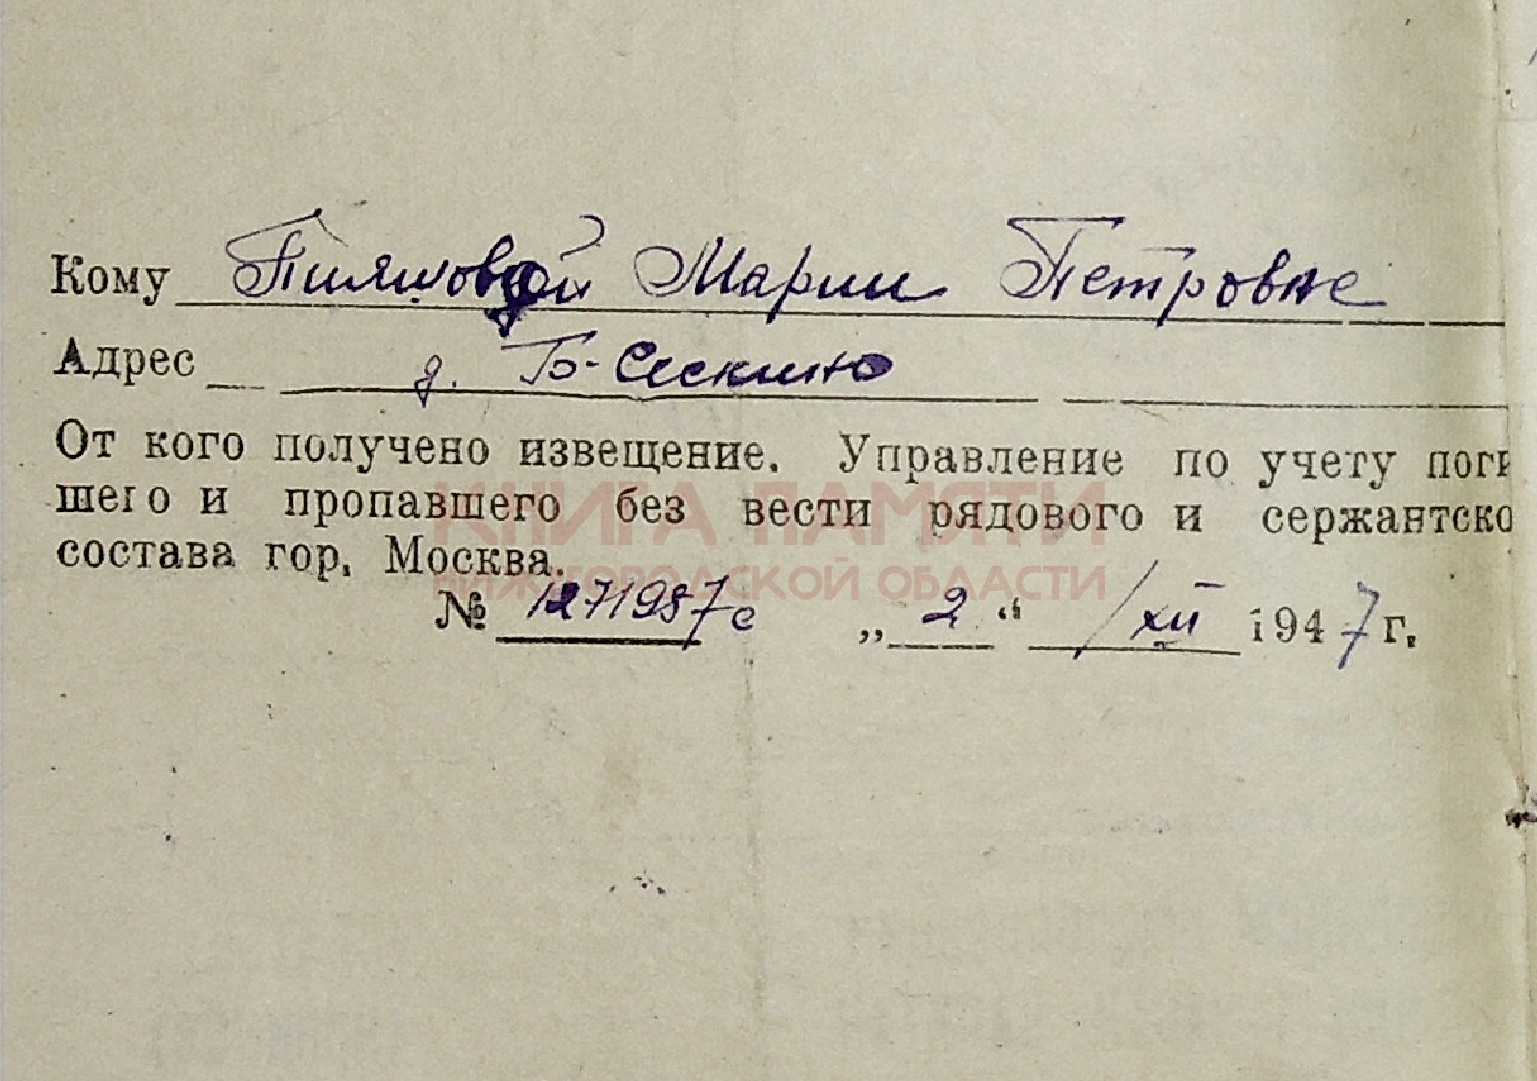 Кому Пиляшовой Марии Петровне
Адрес д. Б-Сескино
От кого получено извещение. Управление по учету поги
шего и пропавшего без вести рядового и сержантско
состава гор. Москва.
КНИГА ПАМЯТИ
НИЖЕГОРОДСКОЙ ОБЛАСТИ
№ 1271987с „ 2 “ /XII 1947 г.